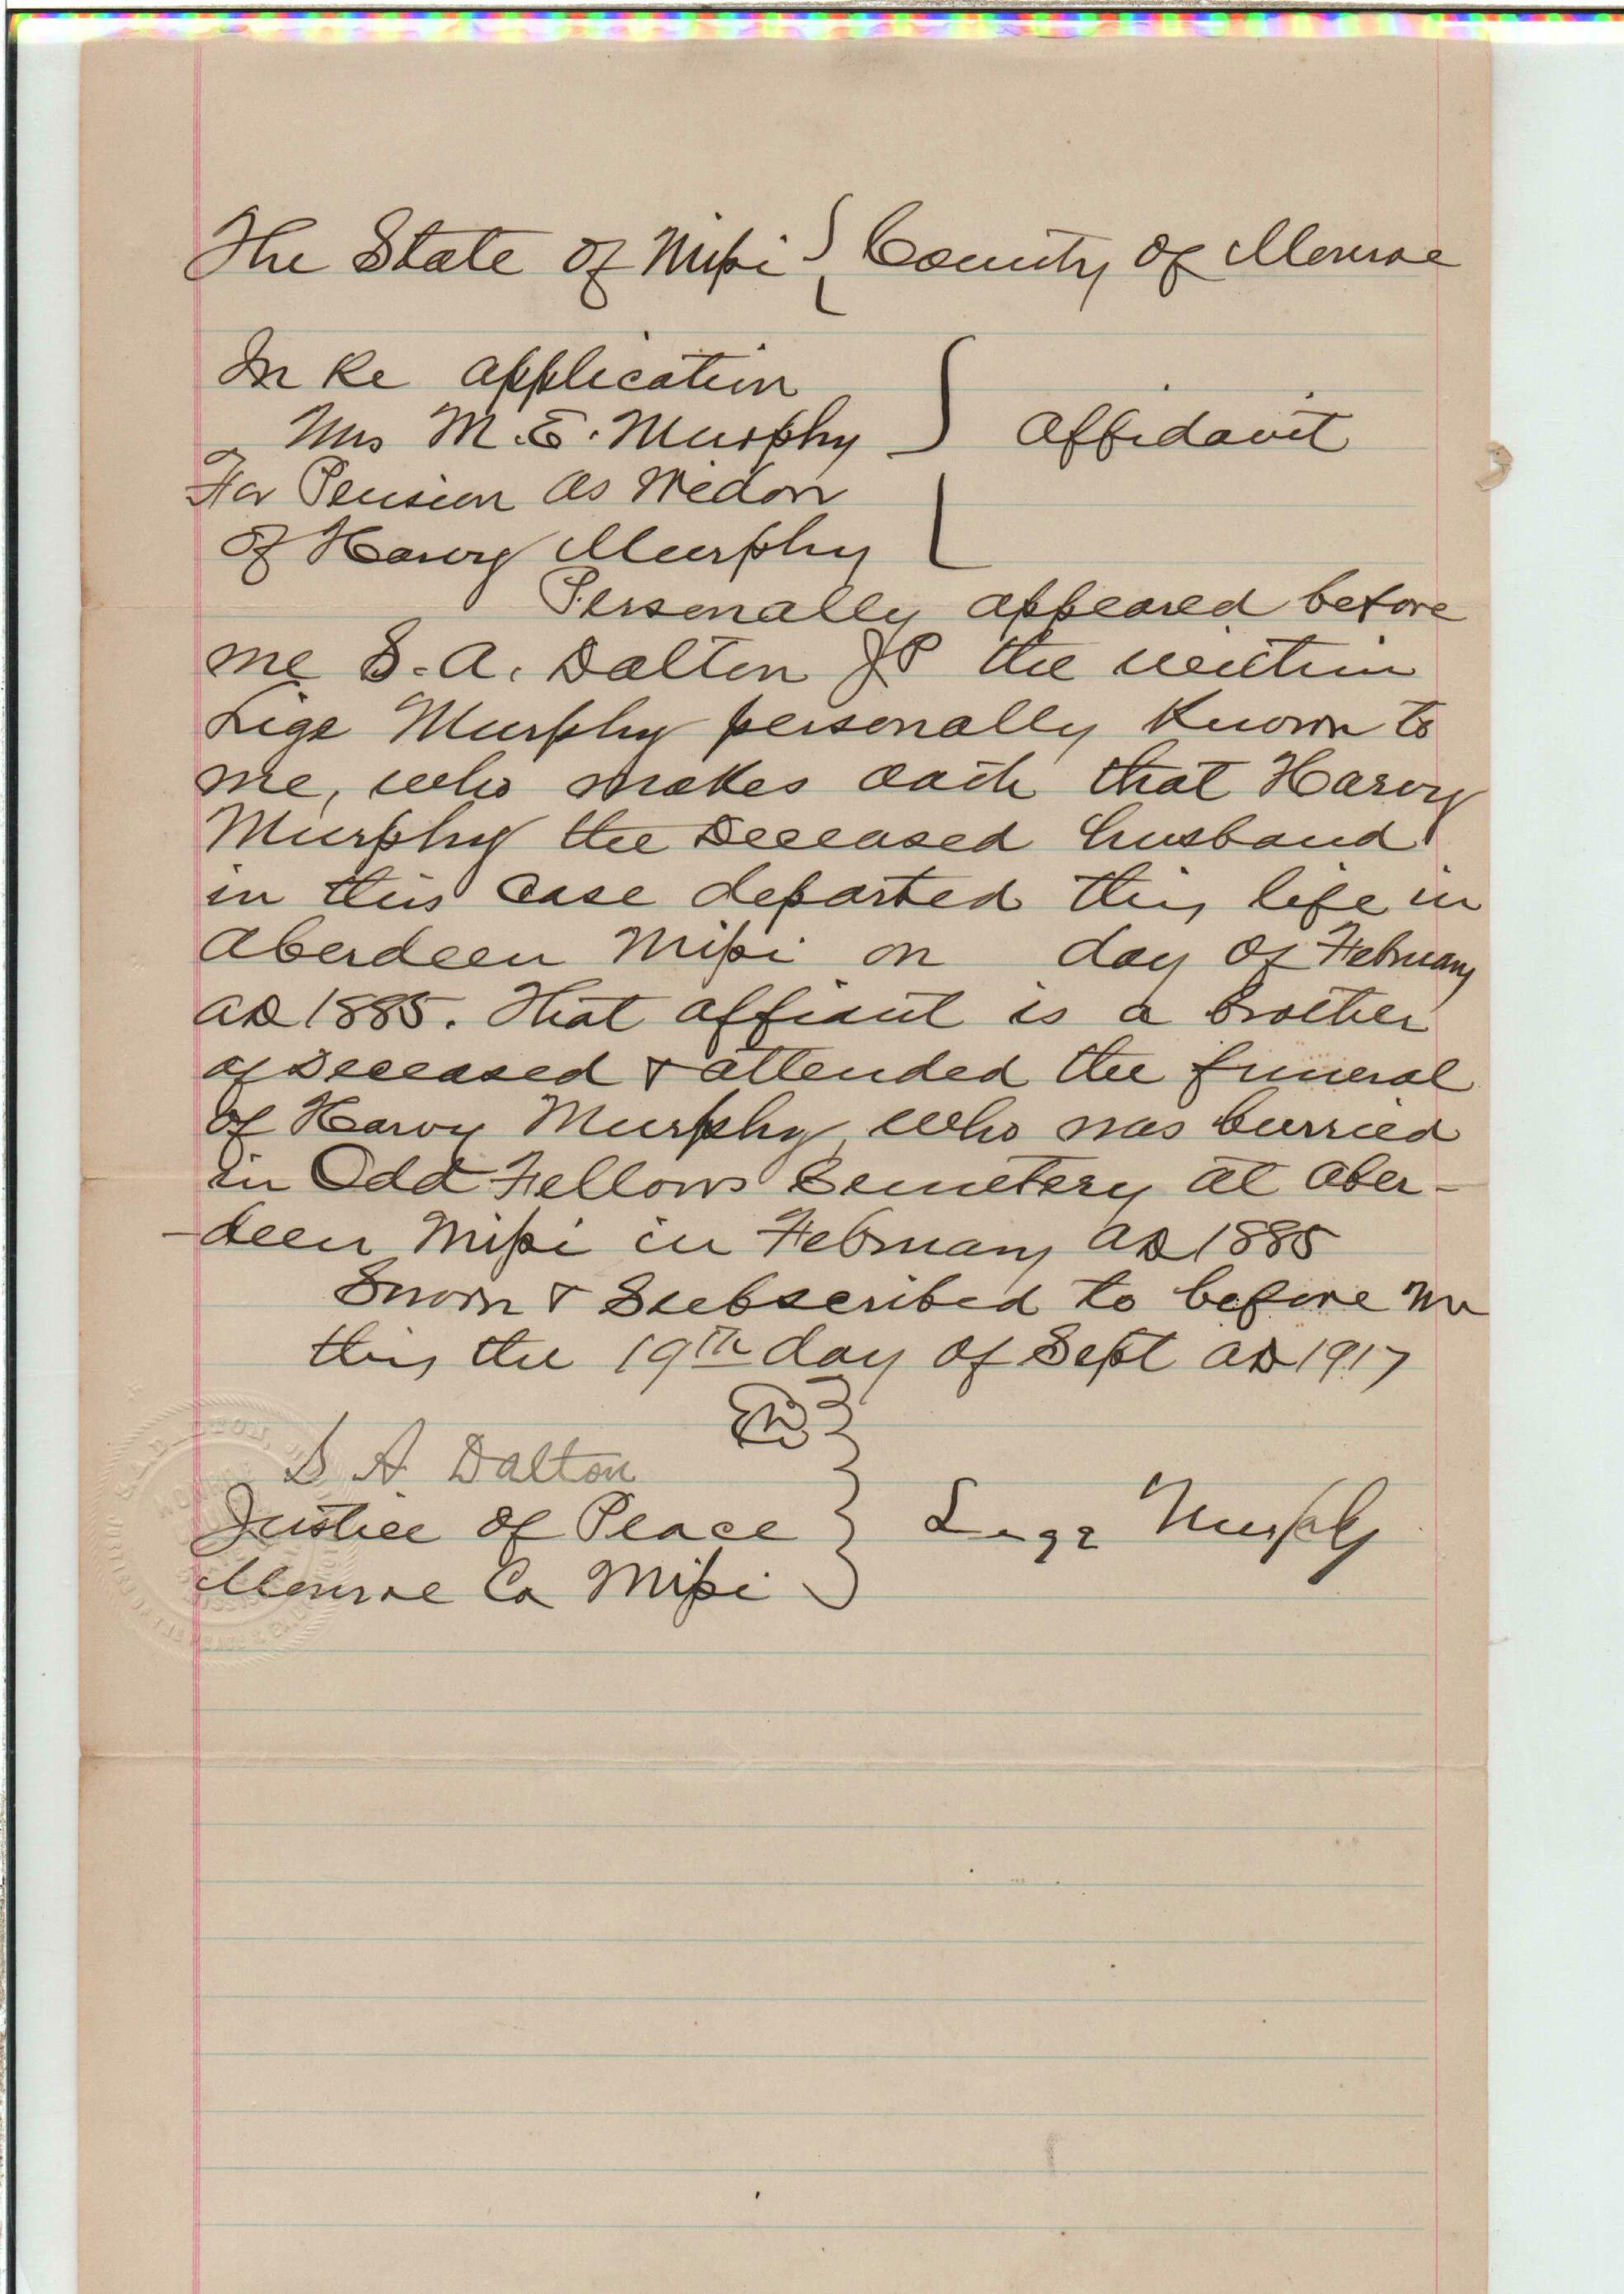 The State of Missi } County of Monroe
In Re application
Mrs M. E. Murphy } affidavit
For Pension as Widow
of Harvy Murphy
Personally appeared before
me S. A. Dalton JP the within
Lige Murphy personally Known to
me, who makes oath that Harvy
Murphy the Deceased husband
in this case departed this life in
Aberdeen Missi on day of February
AD 1885. That affiant is a Brother
of Deceased & attended the funeral
of Harvy Murphy, who was burried
in Odd Fellows Cemetery at Aber-
-deen Missi in February AD 1885
Sworn & Subscribed to before me
this the 19th day of Sept AD 1917
S A Dalton
Justice of Peace } Lige Murphy
Monroe Co Missi